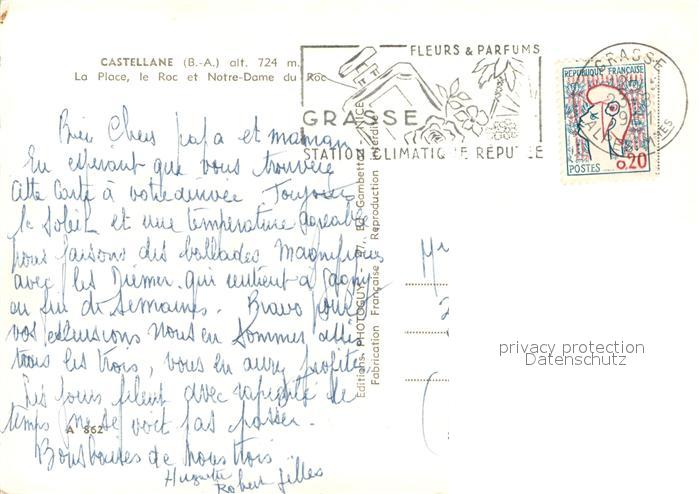 CASTELLANE (B.-A.) alt. 724 m.
La Place, le Roc et Notre-Dame du Roc
FLEURS & PARFUMS
GRASSE
STATION CLIMATIQUE RÉPUTÉE
GRASSE
REPUBLIQUE FRANÇAISE
0,20
POSTES
Bien Chers papa et maman
En espérant que vous trouverez
cette carte à votre arrivée Toujours
le Soleil et une température agréable
nous faisons des ballades magnifiques
avec les qui rentrent à
en fin de Semaines. Bravo pour
vos excursions Nous en sommes
tous les trois, vous en aurez profité
Les jours filent avec rapidité le
temps ne se voit pas passer.
Bons baisers de nous trois
Huguette
Robert Gilles
A 862
Editions PHOTOGUY - 37, Bd Gambetta - NICE
Fabrication Française - Reproduction interdite
Mr
privacy protection
Datenschutz